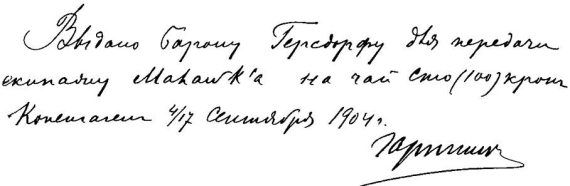 Выдано барону Герсдорфу для передачи
экипажу Маhawk'а на чай сто (100) крон
Копенгаген 4/17 Сентября 1904 г.